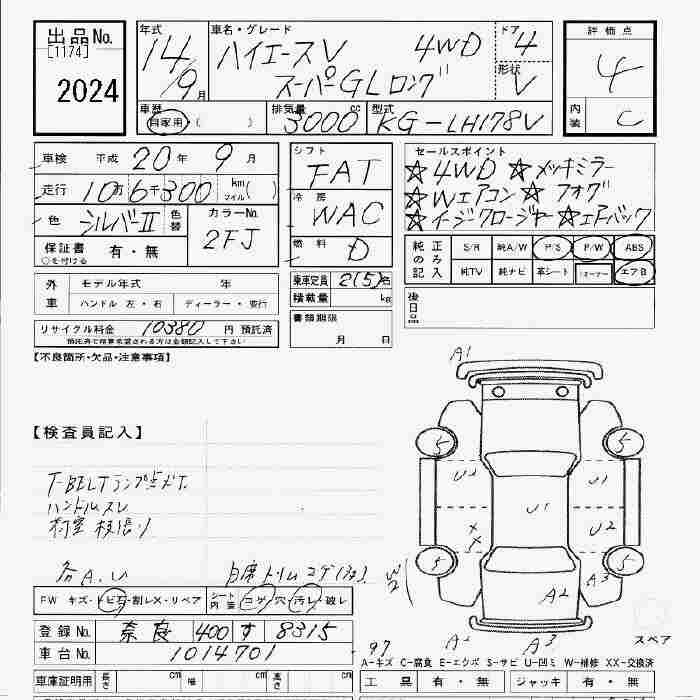 出品No.
[1174]
2024
年式
14/9月
車名・グレード
ハイエースV 4WD
スーパーGLロング
ドア
4
形状
V
車歴
自家用・( )
排気量 cc
3000
型式
KG-LH178V
評価点
4
内装
C
車検 平成 20年 9月
走行 10万6千300 km マイル( )
色 シルバーII 色替
カラーNo.
2FJ
保証書 有・無
○を付ける
シフト
FAT
冷房
WAC
燃料
D
セールスポイント
☆4WD ☆メッキミラー
☆Wエアコン☆フォグ
☆イージークロージャー☆エアバック
純正のみ記入
S/R 純A/W P/S P/W ABS
純TV 純ナビ 革シート エアB
外車
モデル年式 年
ハンドル 左・右 ディーラー・並行
乗車定員 2(5)名
積載量 kg
後日品
リサイクル料金 10380 円 預託済
預託済で精算希望される方は金額記入して下さい
書類期限
月 日
【不良箇所・欠品・注意事項】
【検査員記入】
T-BELTランプ点灯
ハンドルスレ
荷室 板張り
各A.U
A1
5
5
U2
U1
U1
U2
XX
W2
5
5
A3
A2
A2
A3
FW キズ・トビ石・割レX・リペア
シート内張 コゲ・穴・汚レ・破レ
登録No. 奈良 400 す 8315
車台No. 1014701
97
スペア
A-キズ C-腐食 E-エクボ S-サビ U-凹ミ W-補修 XX-交換済
車庫証明用 長さ cm 幅 cm 高さ cm
工具 有・無 ジャッキ 有・無